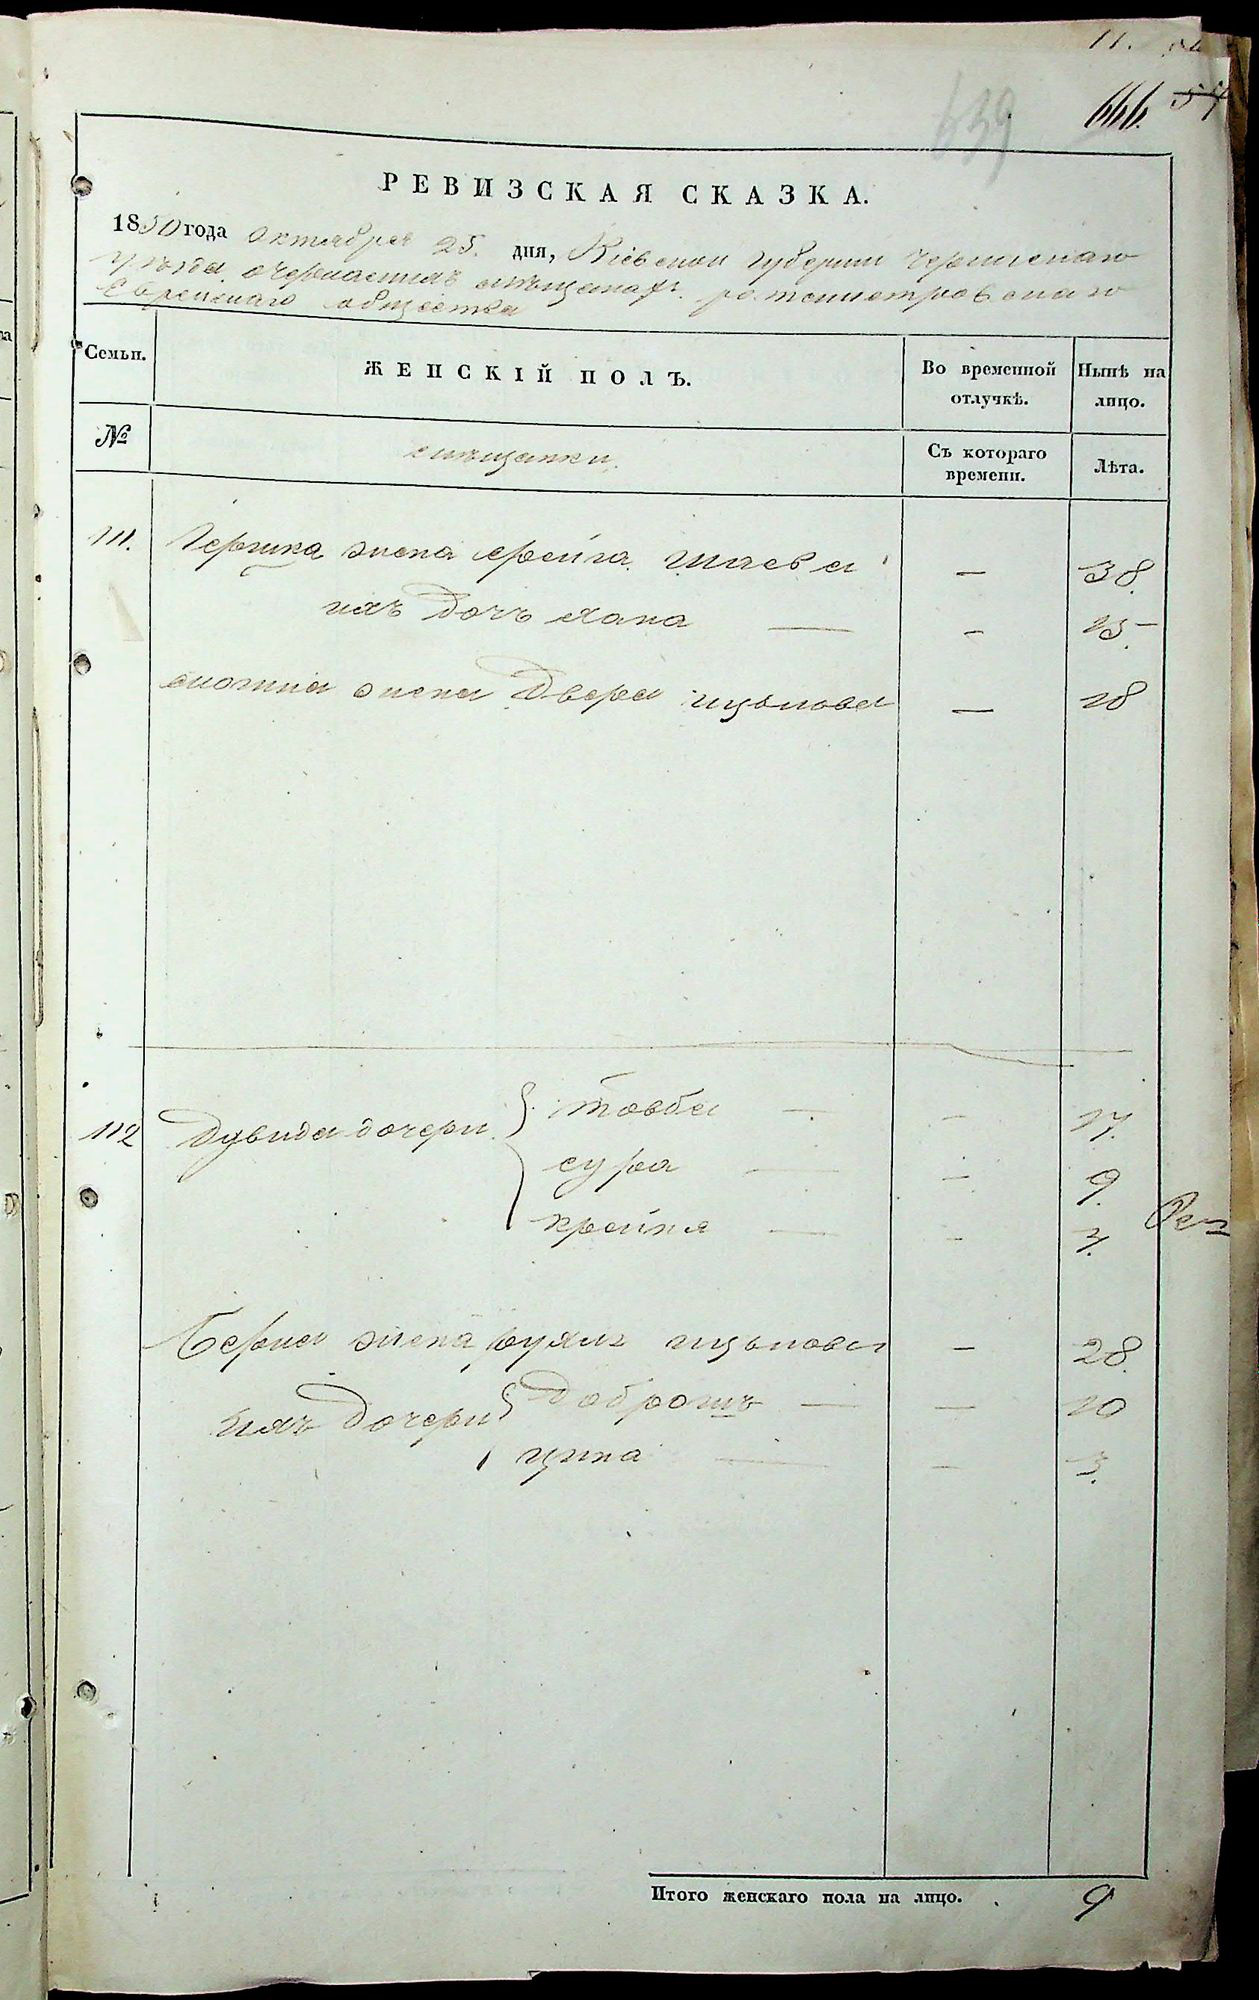 11.
639 666. 57
РЕВИЗСКАЯ СКАЗКА.
1850 года октября 25. дня, Кіевской губерніи
уѣзда о мѣщанахъ
Еврейскаго общества
Семьи. ЖЕНСКІЙ ПОЛЪ. Во временной отлучкѣ. Нынѣ на лицо.
№ мѣщанки. Съ котораго времени. Лѣта.
111. Гершка жена Фрейга Шаева — 38.
ихъ дочь Хана — — 15.
жена Двера Ицькова — 18
112 Дувида дочери Товба — — 17.
сура — — 9.
крейня — — 3.
Берка жена Ицькова — 28.
ихъ дочери Доброшъ — — 10
ципа — — 3.
Итого женскаго пола на лицо. 9